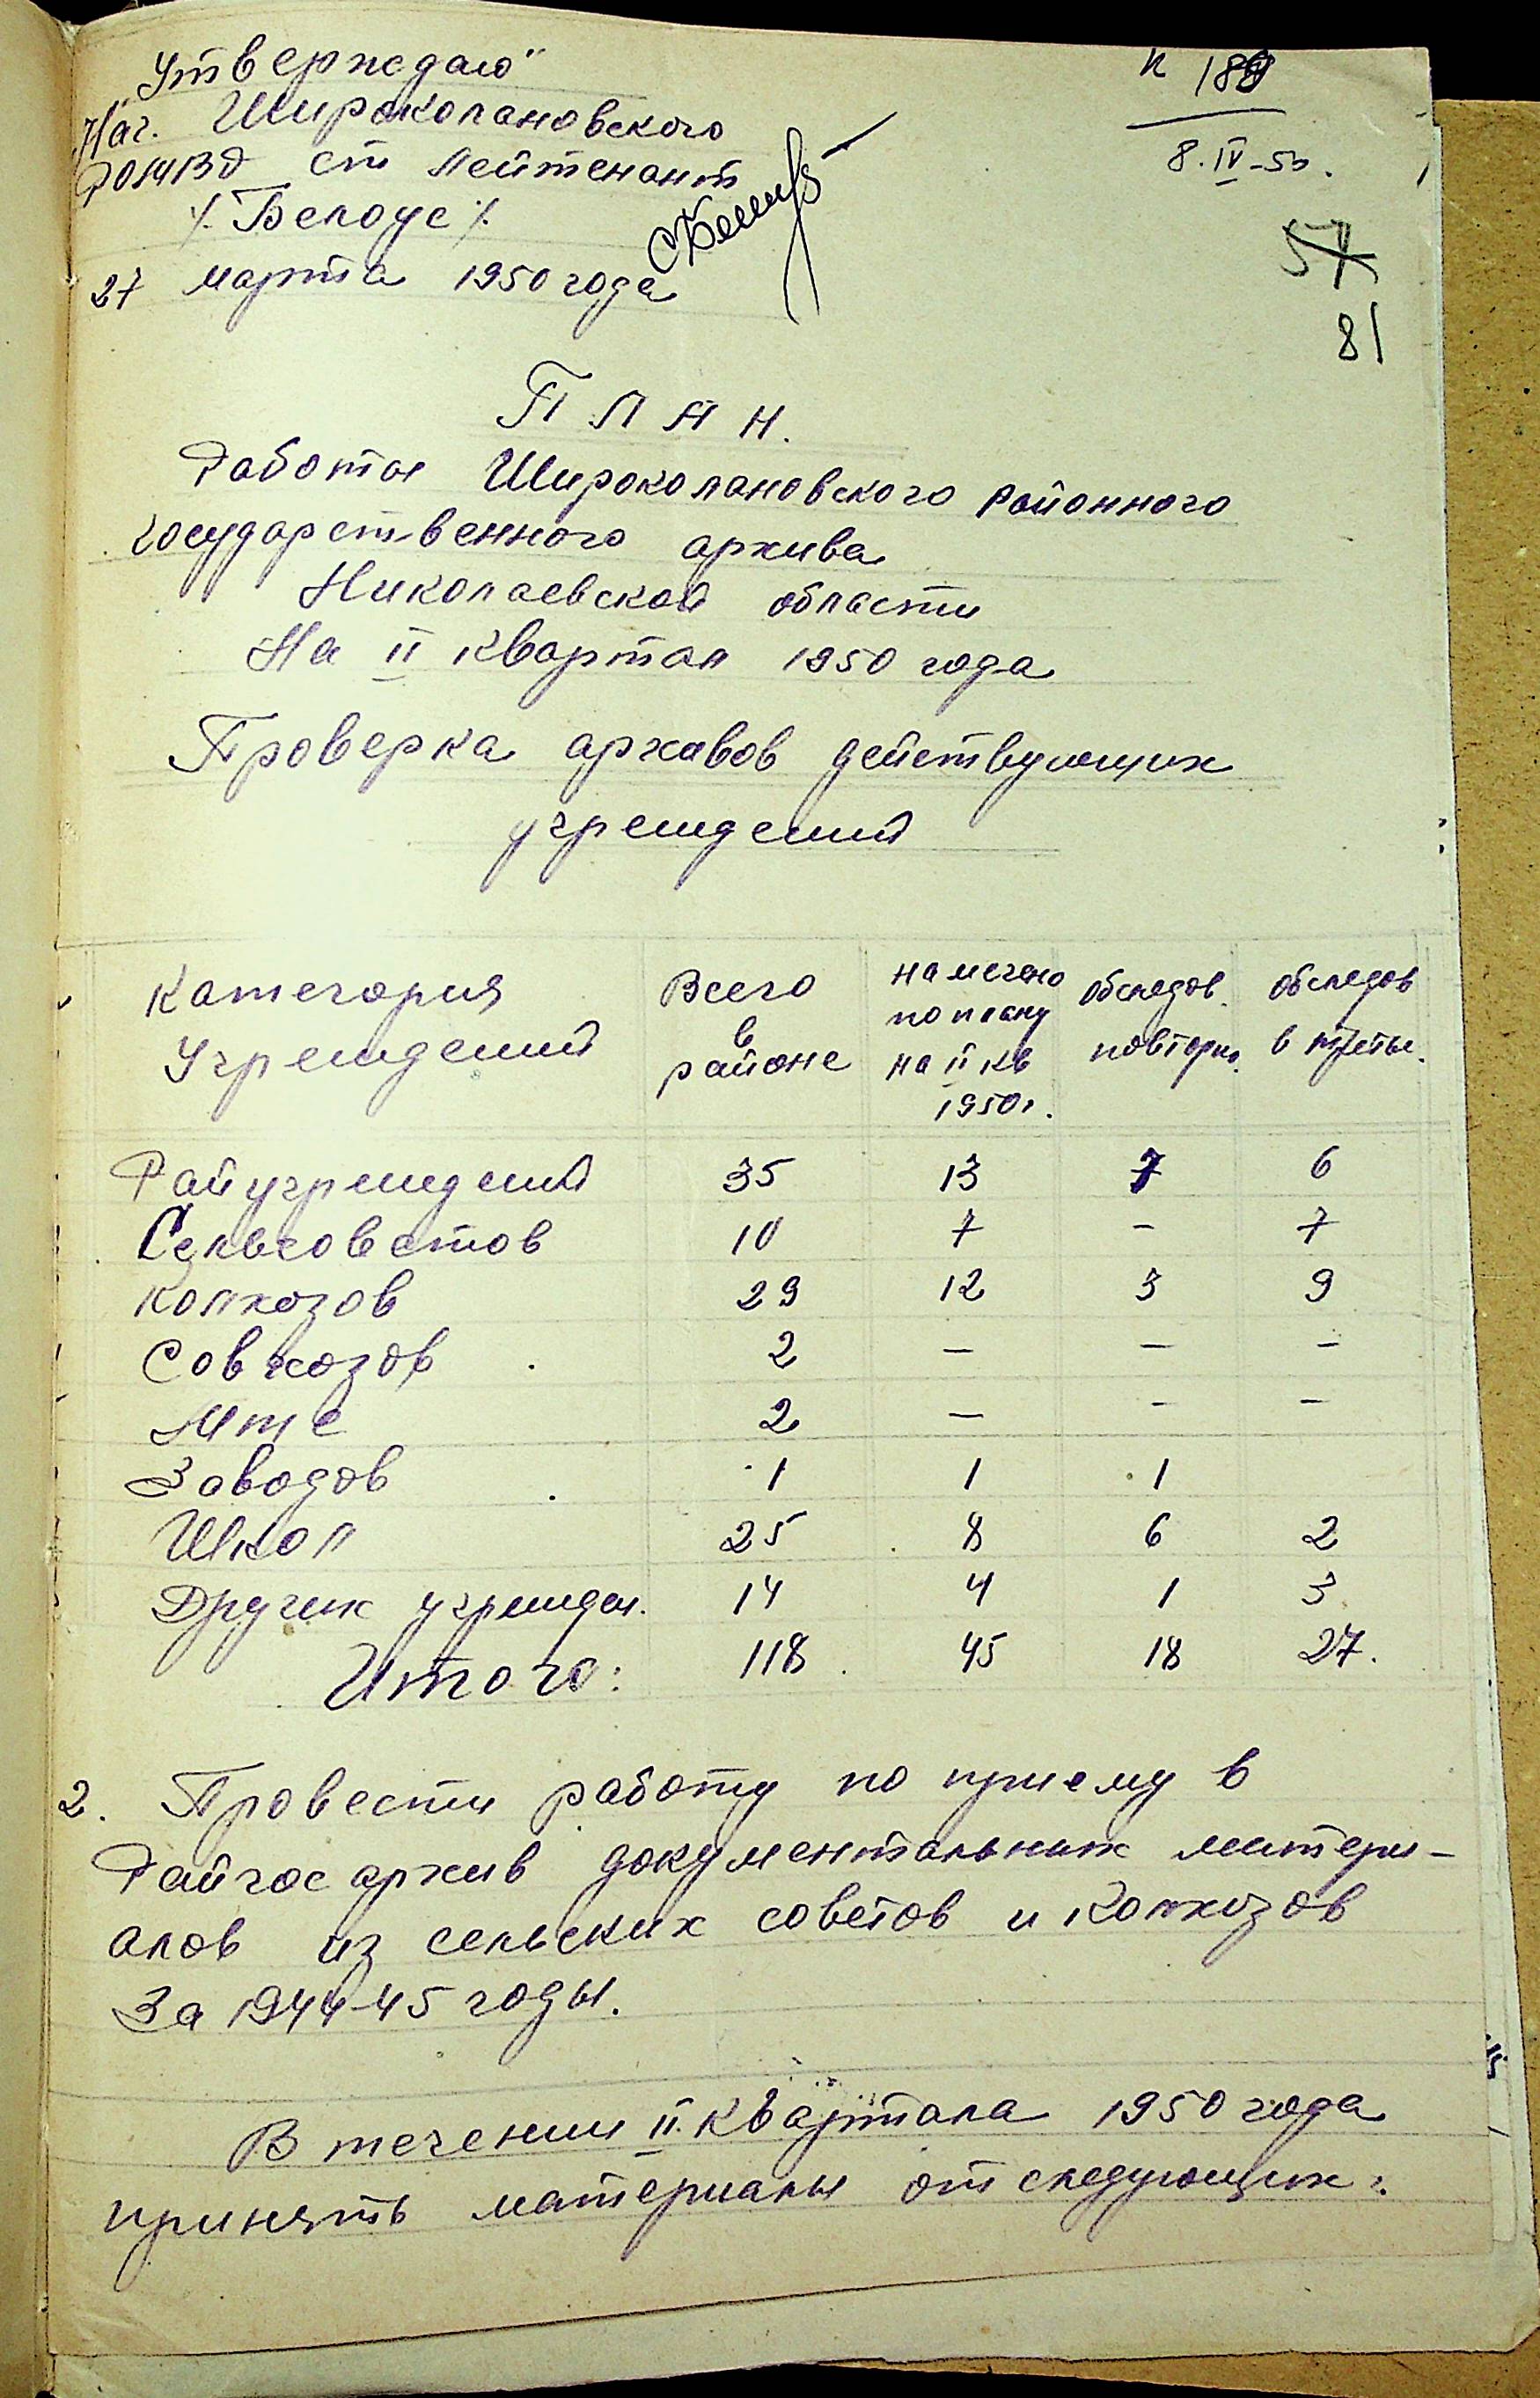 „Утверждаю"
Нач. Широколановского
РОМВД ст лейтенант
/. Белоус ./
27 марта 1950 года
8.IV-50.
57
81
ПЛАН.
Работы Широколановского районного
государственного архива
Николаевской области
На II квартал 1950 года
Проверка архивов действующих
учреждений
Категория Учреждений | Всего в районе | намечено по плану на II кв 1950г. | обследов. повторно. | обследов в третье.
Райучреждений 35 13 7 6
Сельсоветов 10 7 - 7
Колхозов 29 12 3 9
Совхозов 2 — — -
Мтс 2 — - -
Заводов 1 1 1
Школ 25 8 6 2
Других учрежден. 14 4 1 3
Итого: 118 45 18 27.
2. Провести работу по приему в
Райгосархив документальных матери-
алов из сельских советов и колхозов
За 1944-45 годы.
В течении II квартала 1950 года
принять материалы от следующих: